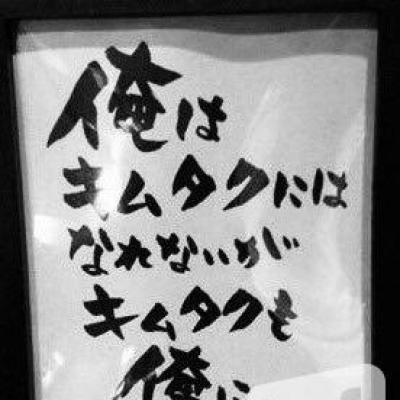 俺は
キムタクには
なれないが
キムタクも
俺に